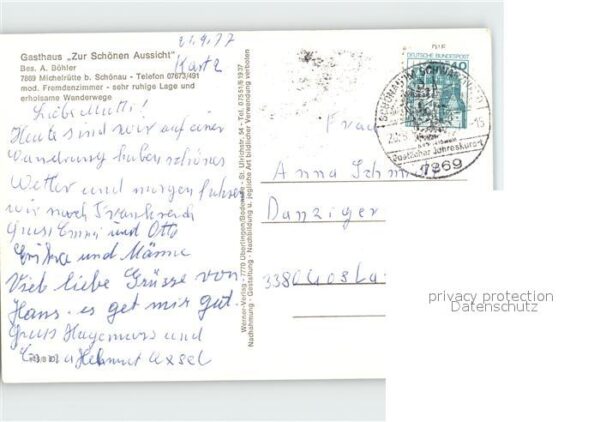 21.9.77
Karte 2
Gasthaus „Zur Schönen Aussicht"
Bes. A. Böhler
7869 Michelrütte b. Schönau - Telefon 07673/491
mod. Fremdenzimmer - sehr ruhige Lage und
erholsame Wanderwege
Liebe Mutti!
Heute sind wir auf einer
Wandrung haben schönes
Wetter und morgen fahren
wir nach Frankreich
Gruss Emmi und Otto
Erika und Männe
Viel liebe Grüsse von
Hans. es get mir gut.
Gruss
und
Helmut Axel
Werner-Verlag - 7770 Überlingen/Bodensee - St. Ulrichstr. 54 - Tel. 07551/61937
Nachahmung - Gestaltung - Nachbildung u. jegliche Art bildlicher Verwendung verboten
DEUTSCHE BUNDESPOST
40
SCHÖNAU IM SCHWARZWALD
-15
Dostlicher Jahreskurort
7869
Frau
Anna Schm
Danziger
3380 Gosla
privacy protection
Datenschutz